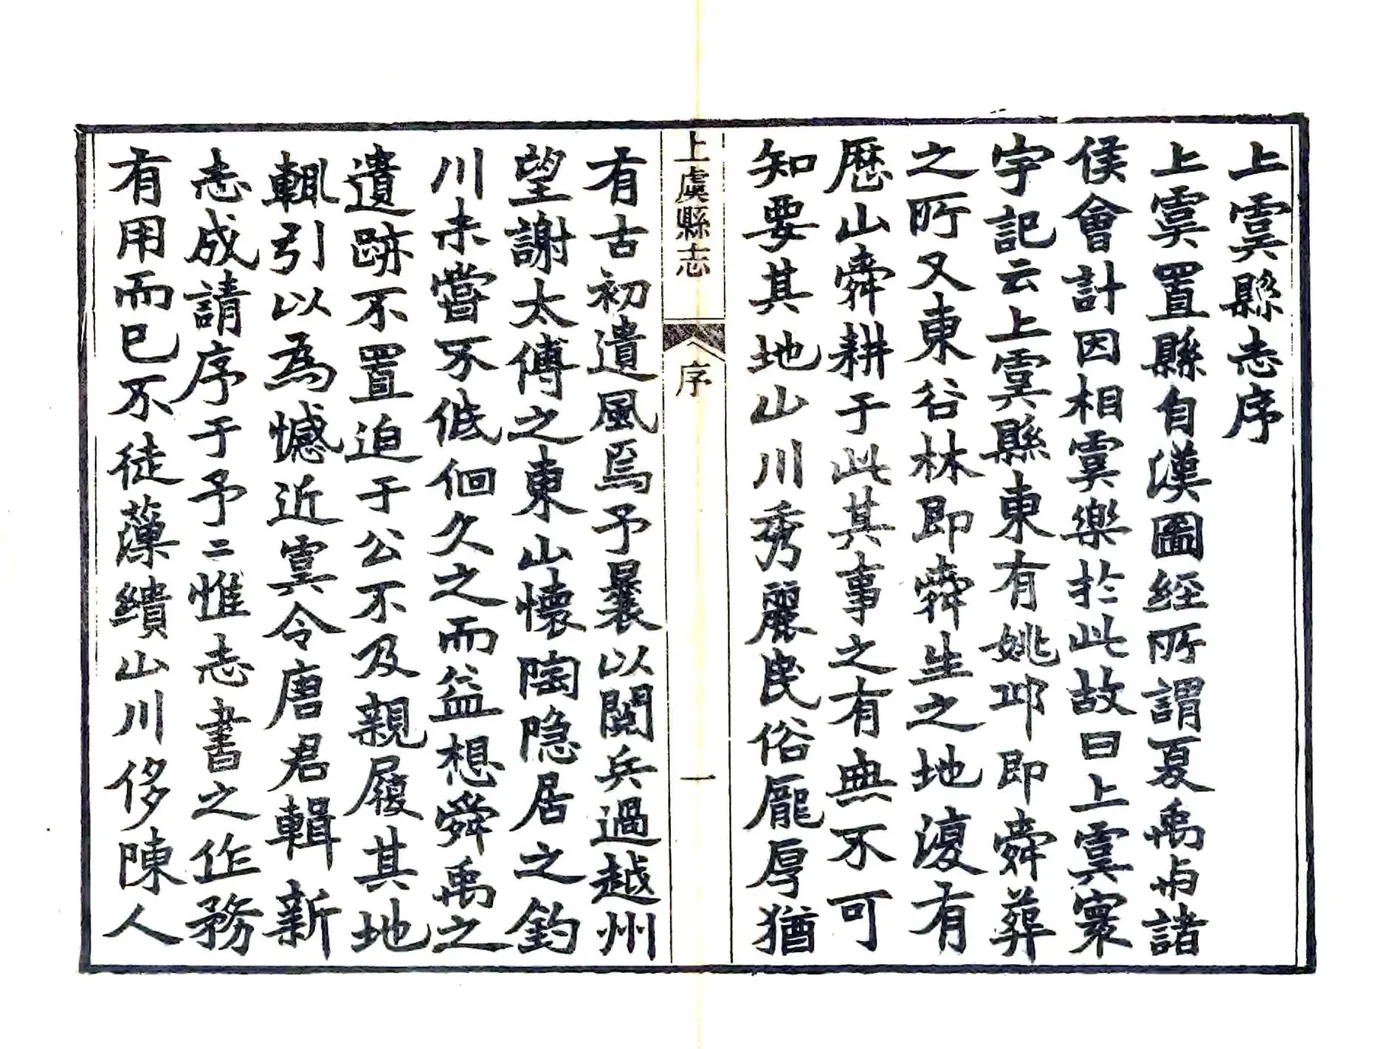 上虞縣志序
上虞置縣自漢圖經所謂夏禹与諸
侯會計因相虞樂於此故曰上虞寰
宇記云上虞縣東有姚邱即舜葬
之所又東谷林即舜生之地復有
歷山舜耕于此其事之有無不可
知要其地山川秀麗民俗龐厚猶
上虞縣志
序
一
有古初遺風焉予曩以閱兵過越州
望謝太傅之東山懷陶隐居之釣
川未嘗不低佪久之而益想舜禹之
遺跡不置迫于公不及親履其地
輒引以為憾近虞令唐君輯新
志成請序于予二惟志書之作務
有用而已不徒藻繢山川侈陳人